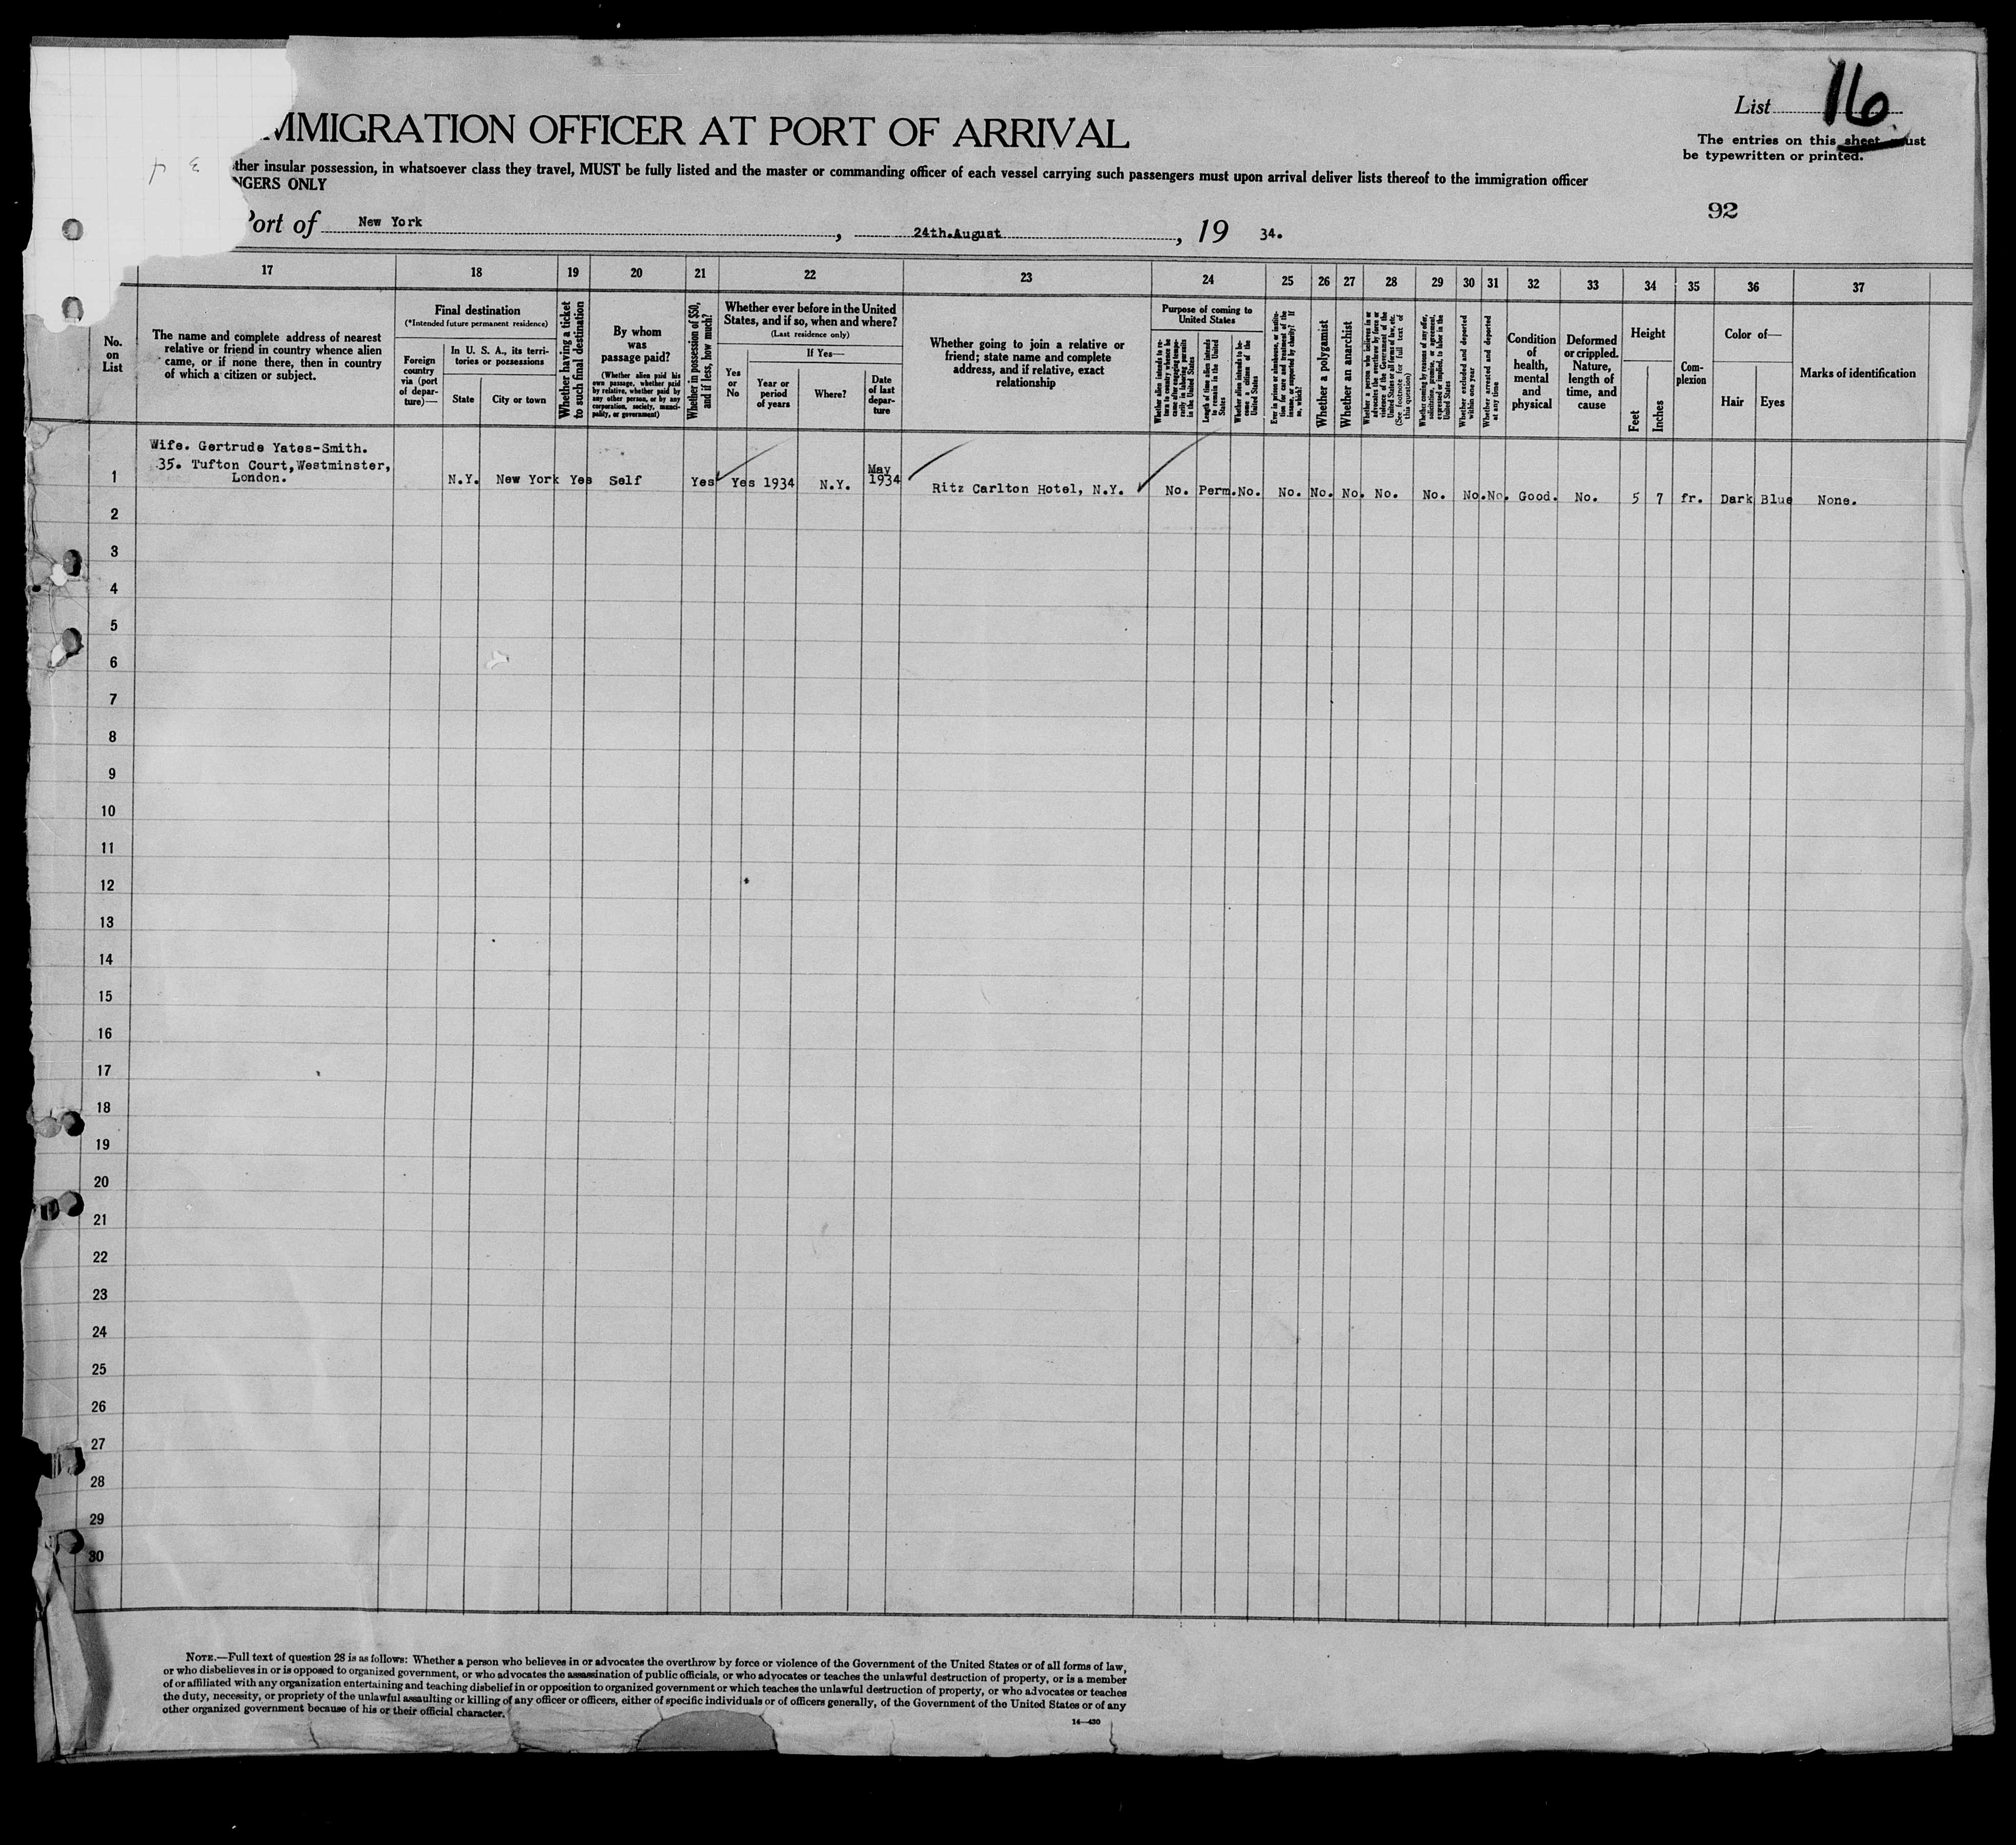 List 16
The entries on this sheet must
be typewritten or printed.
MMIGRATION OFFICER AT PORT OF ARRIVAL
ther insular possession, in whatsoever class they travel, MUST be fully listed and the master or commanding officer of each vessel carrying such passengers must upon arrival deliver lists thereof to the immigration officer
NGERS ONLY
92
Port of New York, 24th.August, 19 34.
17 18 19 20 21 22 23 24 25 26 27 28 29 30 31 32 33 34 35 36 37
No.
on
List
The name and complete address of nearest
relative or friend in country whence alien
came, or if none there, then in country
of which a citizen or subject.
Final destination
(*Intended future permanent residence)
Foreign
country
via (port
of depar-
ture)—
In U. S. A., its terri-
tories or possessions
State
City or town
Whether having a ticket
to such final destination
By whom
was
passage paid?
(Whether alien paid his
own passage, whether paid
by relative, whether paid by
any other person, or by any
corporation, society, munici-
pality, or government)
Whether in possession of $50,
and if less, how much?
Whether ever before in the United
States, and if so, when and where?
(Last residence only)
Yes
or
No
If Yes—
Year or
period
of years
Where?
Date
of last
depar-
ture
Whether going to join a relative or
friend; state name and complete
address, and if relative, exact
relationship
Purpose of coming to
United States
Whether alien intends to re-
turn to country whence he
came after engaging tempo-
rarily in laboring pursuits
in the United States
Length of time alien intends
to remain in the United
States
Whether alien intends to be-
come a citizen of the
United States
Ever in prison or almshouse, or institu-
tion for care and treatment of the
insane, or supported by charity? If
so, which?
Whether a polygamist
Whether an anarchist
Whether a person who believes in or
advocates the overthrow by force or
violence of the Government of the
United States or all forms of law, etc.
(See footnote for full text of
this question)
Whether coming by reasons of any offer,
solicitation, promise, or agreement,
expressed or implied, to labor in the
United States
Whether excluded and deported
within one year
Whether arrested and deported
at any time
Condition
of
health,
mental
and
physical
Deformed
or crippled.
Nature,
length of
time, and
cause
Height
Feet
Inches
Com-
plexion
Color of—
Hair
Eyes
Marks of identification
Wife. Gertrude Yates-Smith.
35. Tufton Court,Westminster,
London.
1 N.Y. New York Yes Self Yes Yes 1934 N.Y. May 1934 Ritz Carlton Hotel, N.Y. No. Perm. No. No. No. No. No. No. No. No. Good. No. 5 7 fr. Dark Blue None.
2
3
4
5
6
7
8
9
10
11
12
13
14
15
16
17
18
19
20
21
22
23
24
25
26
27
28
29
30
NOTE.—Full text of question 28 is as follows: Whether a person who believes in or advocates the overthrow by force or violence of the Government of the United States or of all forms of law,
or who disbelieves in or is opposed to organized government, or who advocates the assassination of public officials, or who advocates or teaches the unlawful destruction of property, or is a member
of or affiliated with any organization entertaining and teaching disbelief in or opposition to organized government or which teaches the unlawful destruction of property, or who advocates or teaches
the duty, necessity, or propriety of the unlawful assaulting or killing of any officer or officers, either of specific individuals or of officers generally, of the Government of the United States or of any
other organized government because of his or their official character.
14—430